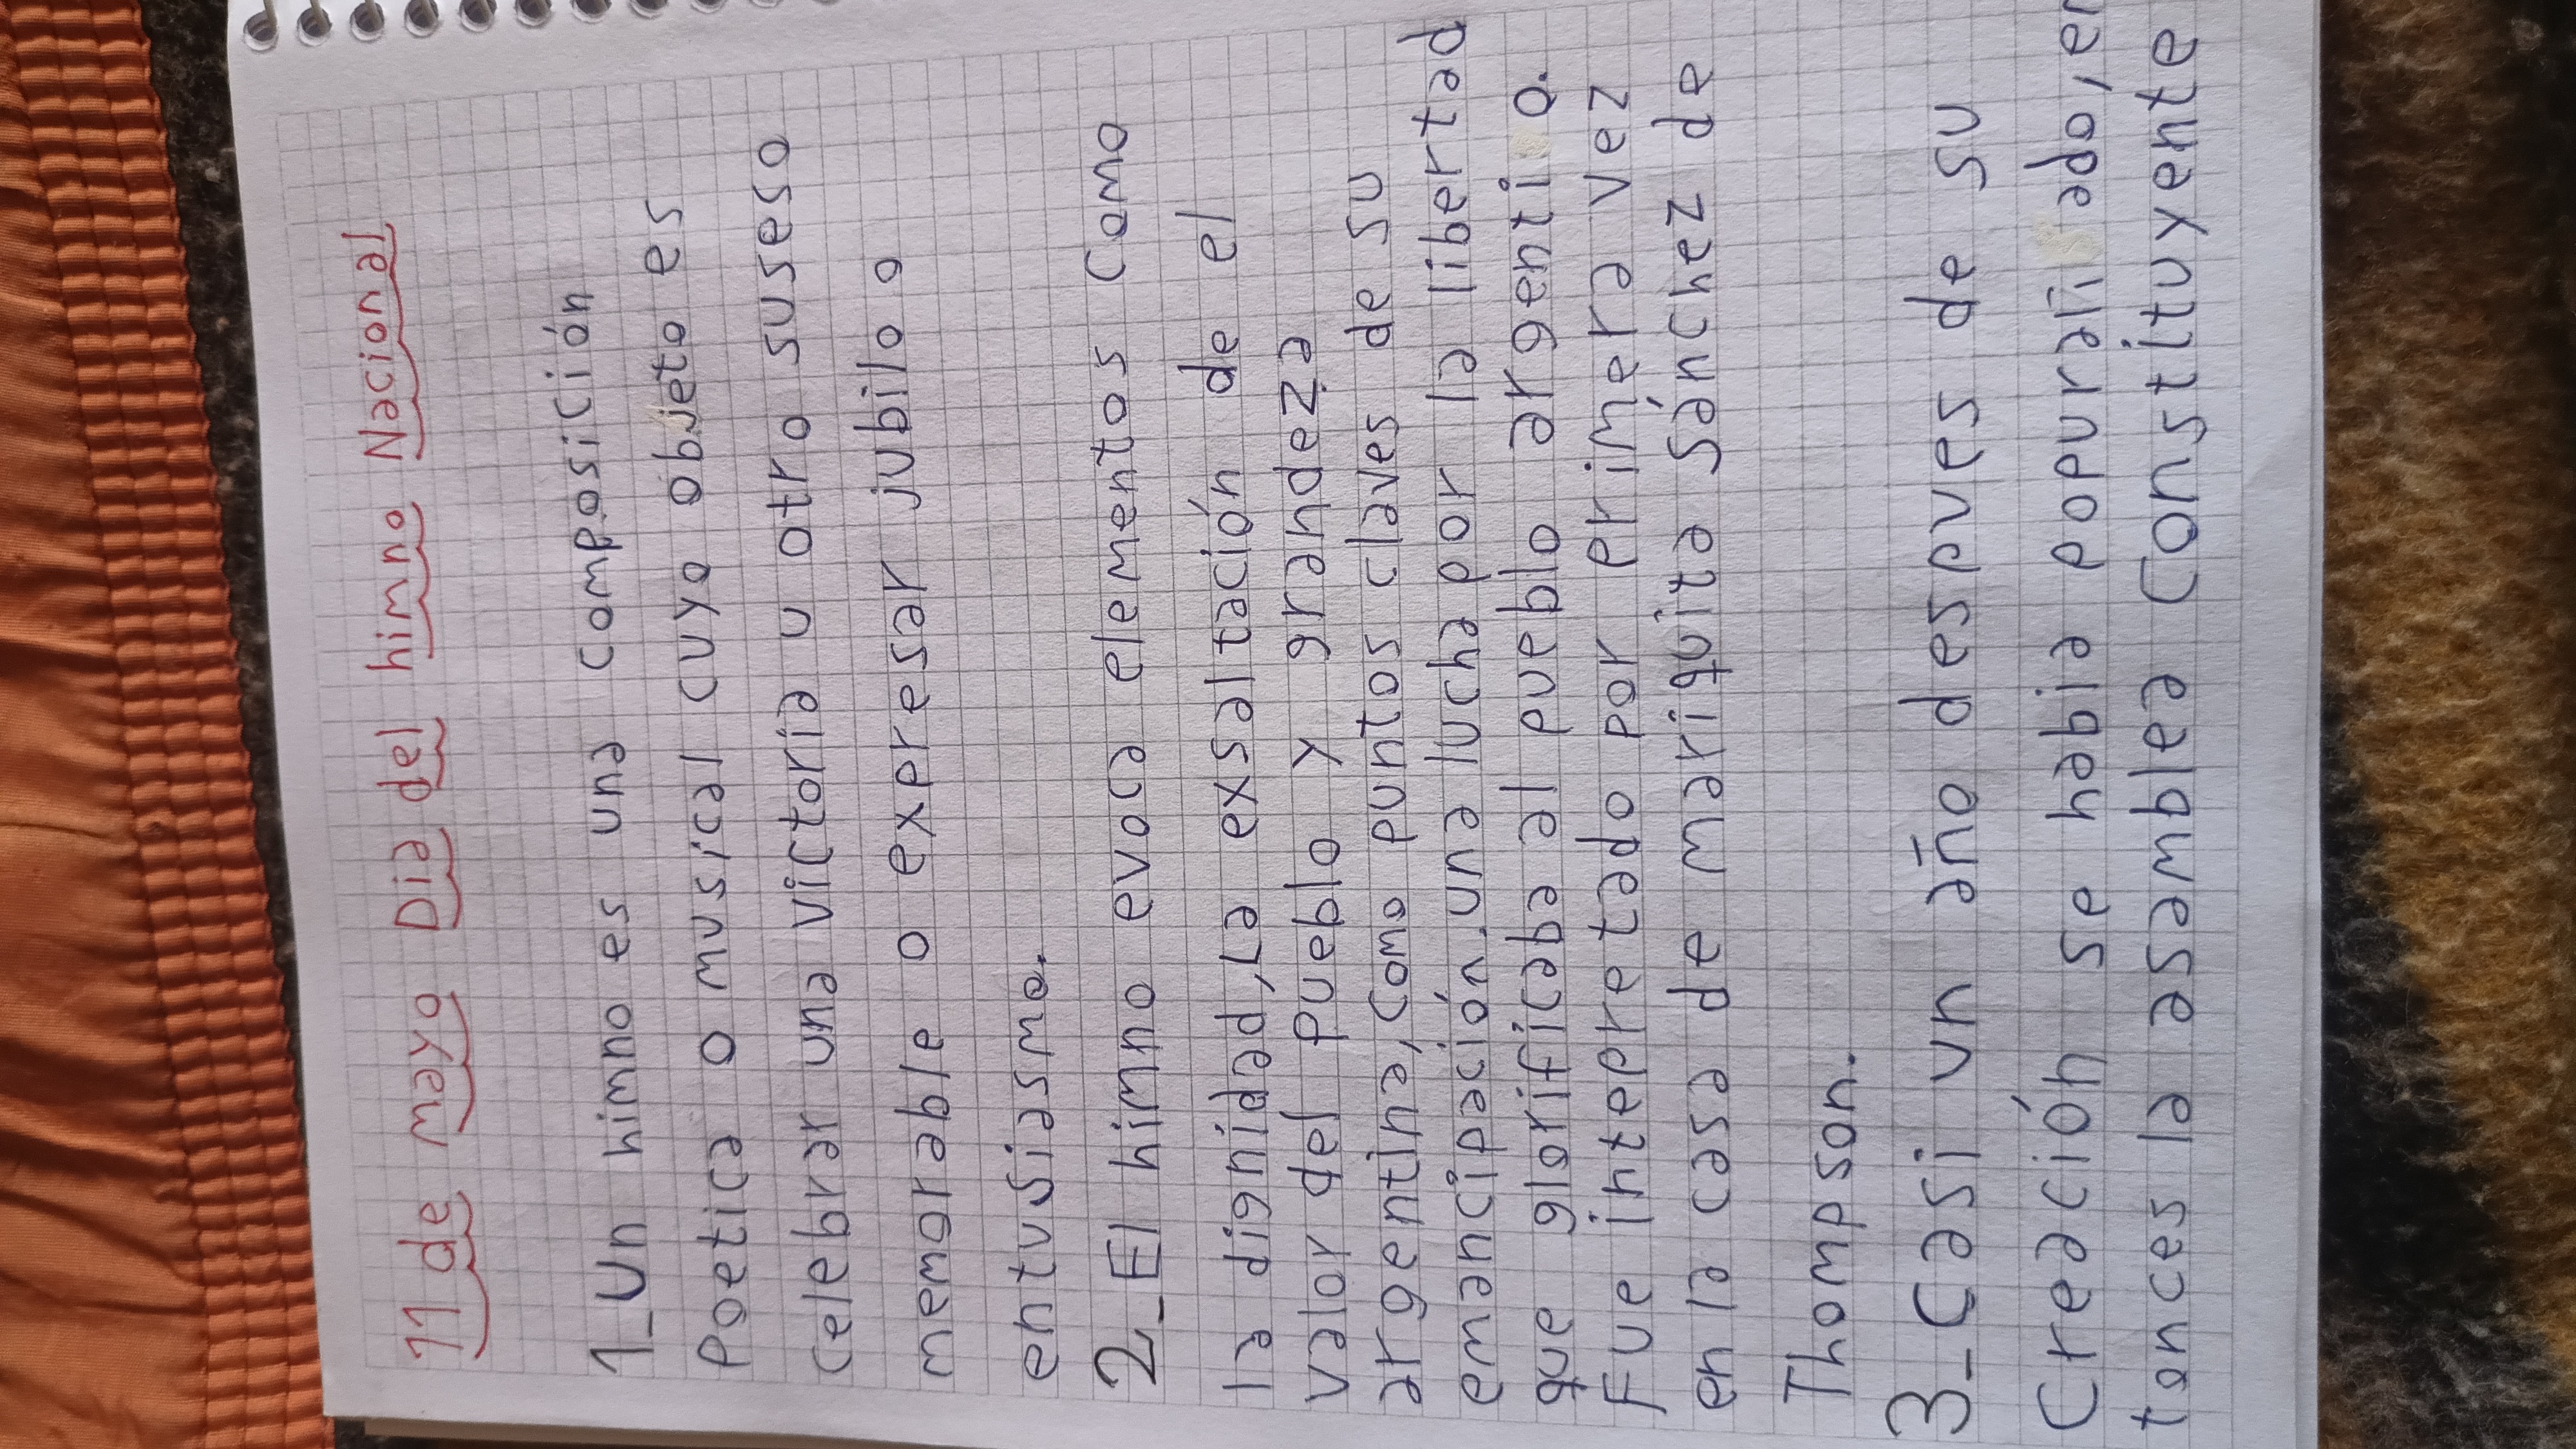 11 de mayo Dia del himno Nacional
1_Un himno es una composición
Poetica o musical cuyo objeto es
celebrar una victoria u otro suseso
memorable o expresar jubilo o
entusiasmo.
2_El himno evoca elementos como
la dignidad, La exsaltación de el
valor del Pueblo y grandeza
argentina, como puntos claves de su
emancipación. una lucha por la libertad
que glorificaba al pueblo argenti o.
Fue intepretado por primera vez
en la casa de mariquita Sánchez de
Thompson.
3_Casi un año despues de su
Creación se habia popurali ado, en
tonces la asamblea Constituyente